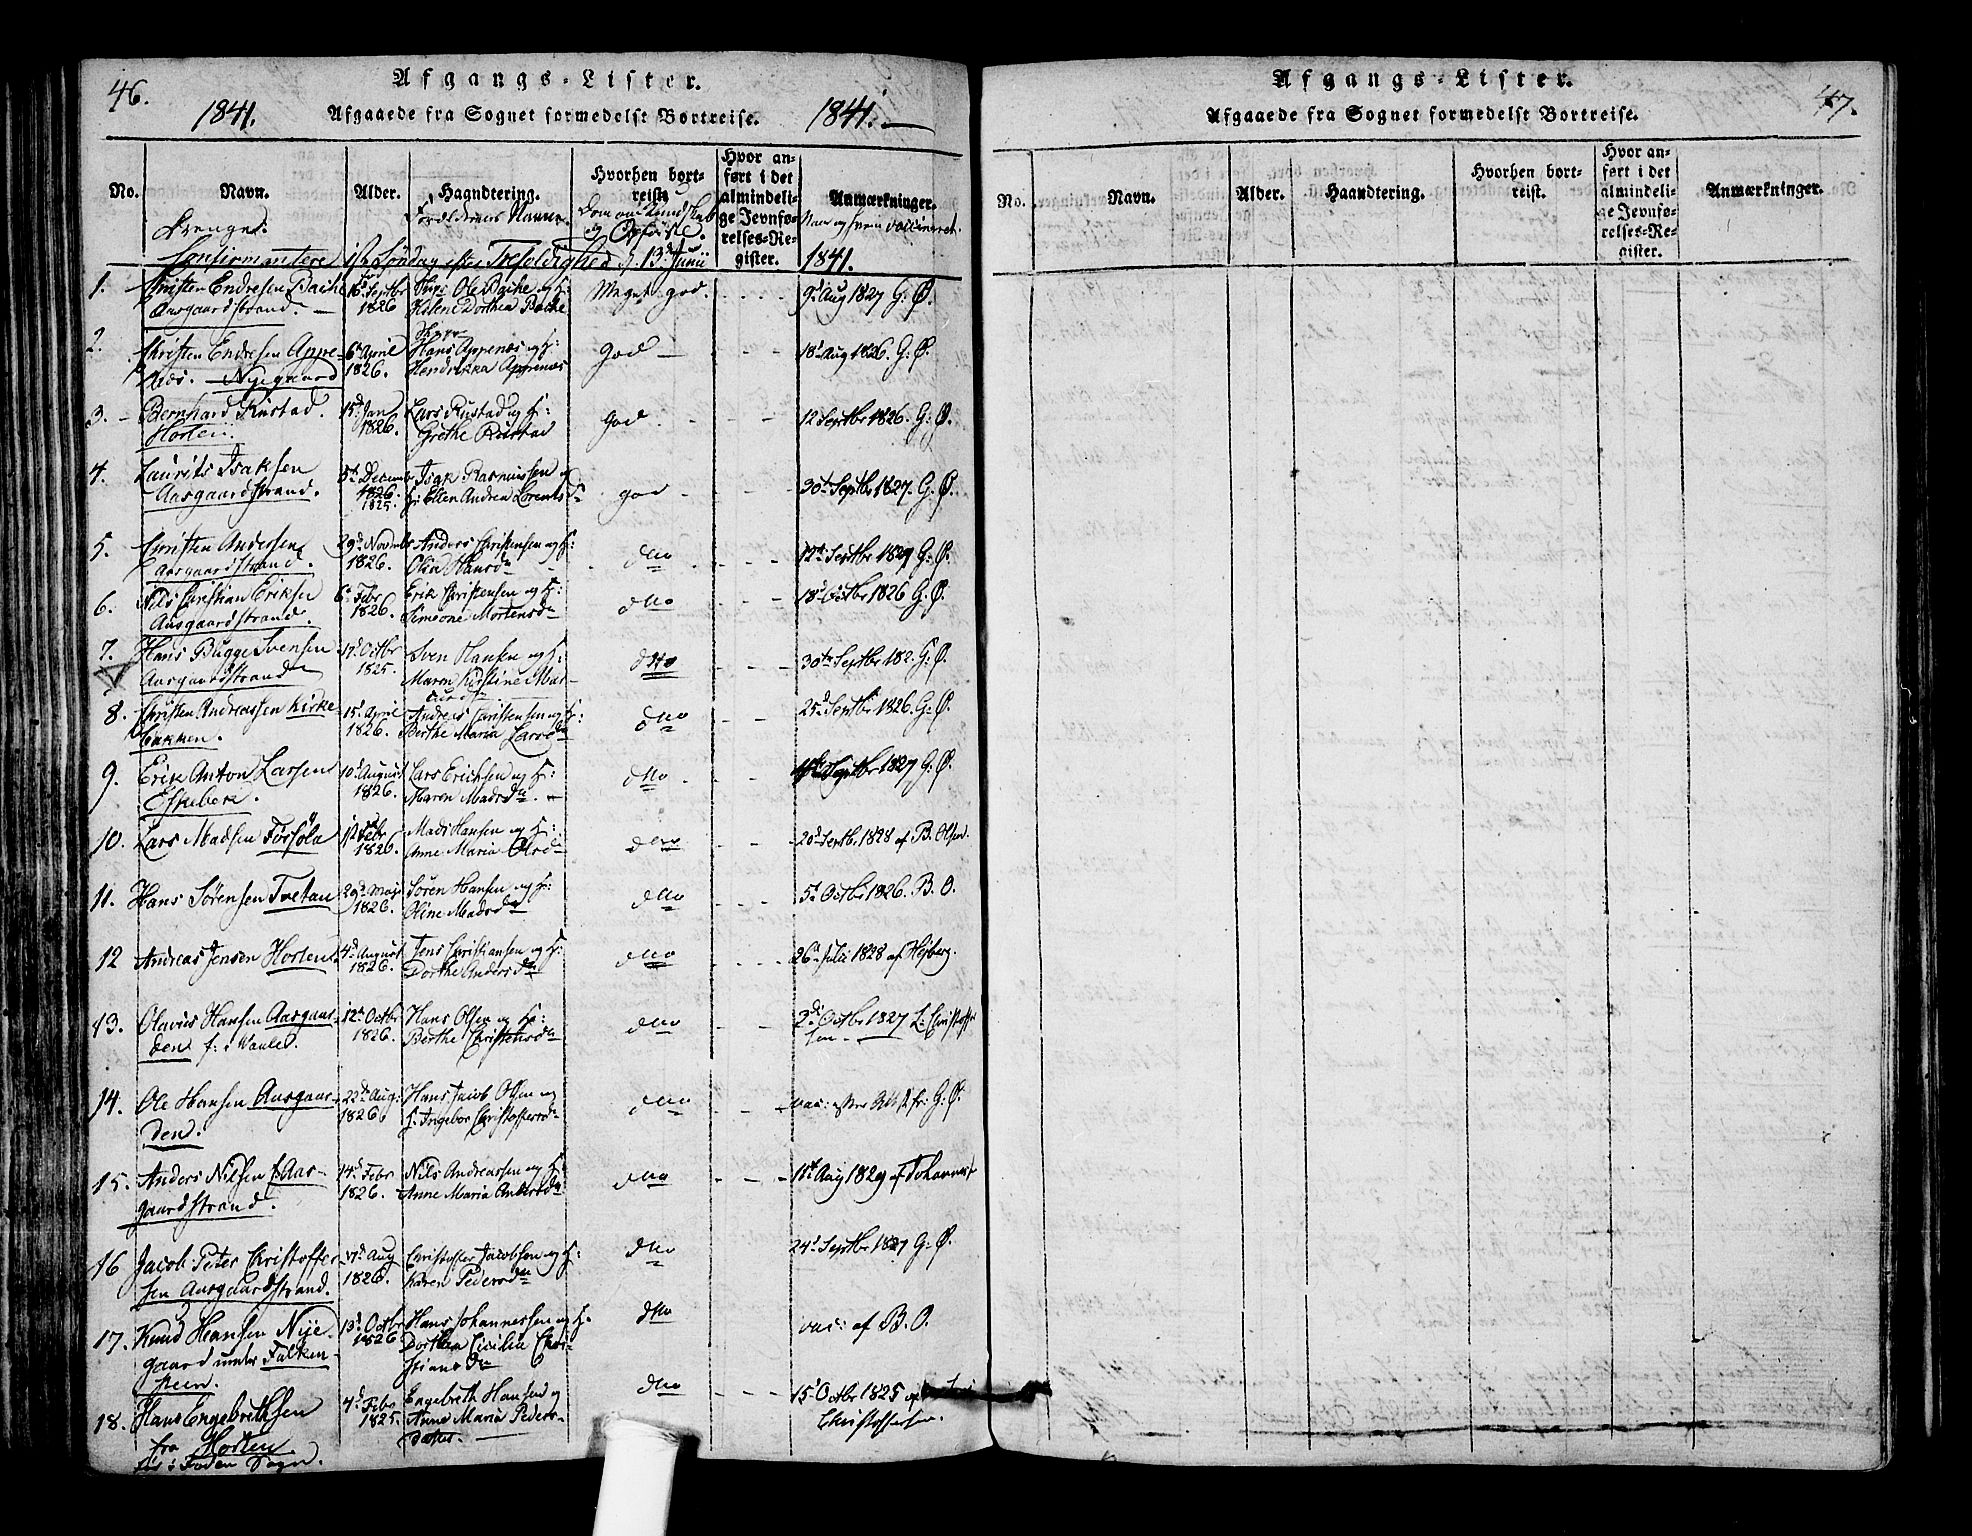 46.
Afgangs-Lister.
1841.
Afgaaede fra Sognet formedelst Bortreise.
1841.
No.
Navn.
Alder.
Haandtering.
Hvorhen bort-
reist.
Hvor an-
ført i det
almindeli-
ge Jevnfø-
relses-Re-
gister.
Anmærkninger.
Drenge.
Forældrenes Navne.
Dom om Kundskab
og Opførsel.
Naar og hvem vaccineret.
Confirmantere 1ste Søndag efter Trefoldighed d. 13d Junii
1841.
1.
Christen Endresen Bache
Aasgaardstrand.
16d Septbr
1826
Ole Bache og H:
Helene Dorthea Bache
Meget god.
9d Aug 1827 G. Ø.
2.
Christen Endresen Appe-
næs. Nyegaard
6d April
1826.
Hans Appenæs og H:
Hendrikka Appenæs
God
18d Aug 1826. G. Ø.
3.
Bernhard Rustad.
Horten.
15d Jan
1826.
Lars Rustad og H:
Grethe Rustad
God.
12 Septbr 1826. G: Ø.
4.
Laurits Isaksen
Aasgaardstrand.
5d Decembr
1826.
1825.
Isak Rasmussen og
H: Ellen Andrea Lorentsd
god
30te Septbr 1827. G. Ø.
5.
Christen Andersen
Aasgaardstrand.
29d Novembr
1826.
Anders Christensen og H:
Olia Hansd
dno
12te Septbr 1829 G: Ø.
6.
Nils Christian Eriksen
Aasgaardstrand.
6d Febr
1826.
Erik Christensen og H:
Simeone Mortensd
dno
18d Octbr 1826 G. Ø.
7.
Hans Bugge Svensen
Aasgaardstrand
17d Octbr
1825.
Sven Hansen og H:
Maren Kirstine Mar-
dno
30te Septbr 182. G. Ø.
8.
Christen Andreassen Kirke-
bakken.
15d April
1826.
Andreas Christensen og H:
Berthe Maria Larsd
dno
25d Septbr 1826. G. Ø.
9.
Erik Anton Larsen
Eskebek.
10d August
1826.
Lars Erichsen og H:
Maren Madsd
dno
Septbr 1827 G. Ø.
10.
Lars Madsen Torsöla
Febr
1826.
Mads Hansen og H:
Anne Maria Olsd
dno
20d Septb. 1828 af B. Olsen.
11.
Hans Sørensen Tvetan
29d Maji
1826.
Søren Hansen og H:
Oline Madsd
dno
5d Octbr 1826. B. O.
12
Andreas Jensen Horten
4d August
1826.
Jens Christiansen og H:
Dorthe Andersd
dno
26d Julii 1828 af Højberg.
13.
Olavus Hansen Aasgaar-
den f: i Vaale.
12te Octbr
1826.
Hans Olsen og H:
Berthe Christensd
dno
2d Octbr 1827 L. Christoffer
sen.
14.
Ole Hansen Aasgaar-
den.
22d Aug:
1826.
Hans Jacob Olsen og
H. Ingebor Christoffersd
dno
vac: efter Att fr: G. Ø.
15.
Anders Nilsen f. Aas-
gaardstrand.
14d Febr
1826.
Nils Andreassen og H:
Anne Maria Andersd
dno
11te Aug 1829 af Johannes
16
Jacob Peter Christoffer-
sen Aasgaardstrand.
7d Aug
1826.
Christoffer Jacobsen og H:
Karen Pedersd
dno
24d Septbr 1827 G. Ø.
17.
Knud Hansen Nye-
gaard under Falken-
steen.
13d Octbr
1826
Hans Johannessen og H.
Dorthea Cicilia Chri-
stiansd
dno
vac: af B. O.
18.
Hans Engebrethsen
fra Horten.
Sogn.
7d Febr
1825.
Engebreth Hansen og
Anne Maria Peders-
datter.
dno
15d Octbr 1825 af
Christoffersen.
Afgangs-Lister.
47.
Afgaaede fra Sognet formedelst Bortreise.
No.
Navn.
Alder.
Haandtering.
Hvorhen bort-
reist.
Hvor an-
ført i det
almindeli-
ge Jevnfø-
relses-Re-
gister.
Anmærkninger.